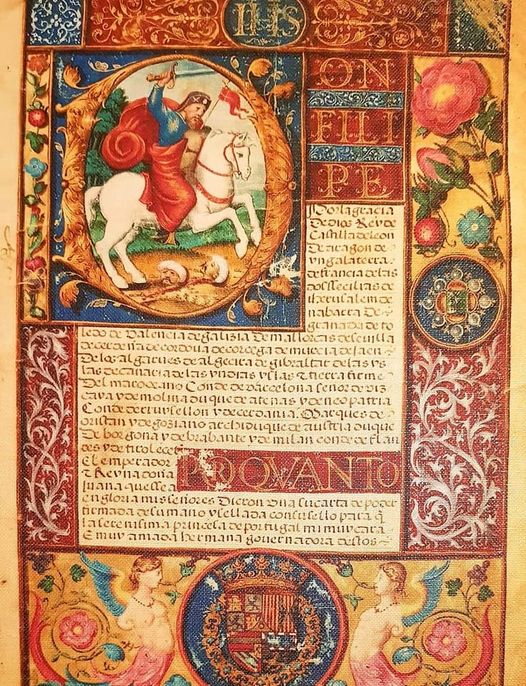 IHS
ON
FILI
PE
Por la gracia
De dios Rey de
Castilla de leon
De aragon de
yngalaterra
de francia de las
dos seçilias de
iherusalem de
nabarra de
granada de to
ledo de Valencia de galizia de mallorcas de sevilla
de cerdeña de cordova de corcega de murcia de jaen
De los algarves de algecira de gibraltar de las ys
las de canaria de las yndias yslas de tierra firme
Del mar oceano Conde de barcelona señor de viz
caya y de molina duque de atenas y de neopatria
Conde de ruysellon y de cerdania Marques de
oristan y de goziano archiduque de austria duque
de borgoña y de brabante y de milan conde de flan
des y de tirol ecet
POR QVANTO
El emperador
y Reyna doña
Juana
en gloria mis señores Dieron Una su carta de poder
firmada de su mano y sellada con su sello para q
la serenisima princesa de portugal mi muy cara
E muy amada hermana governadora destos